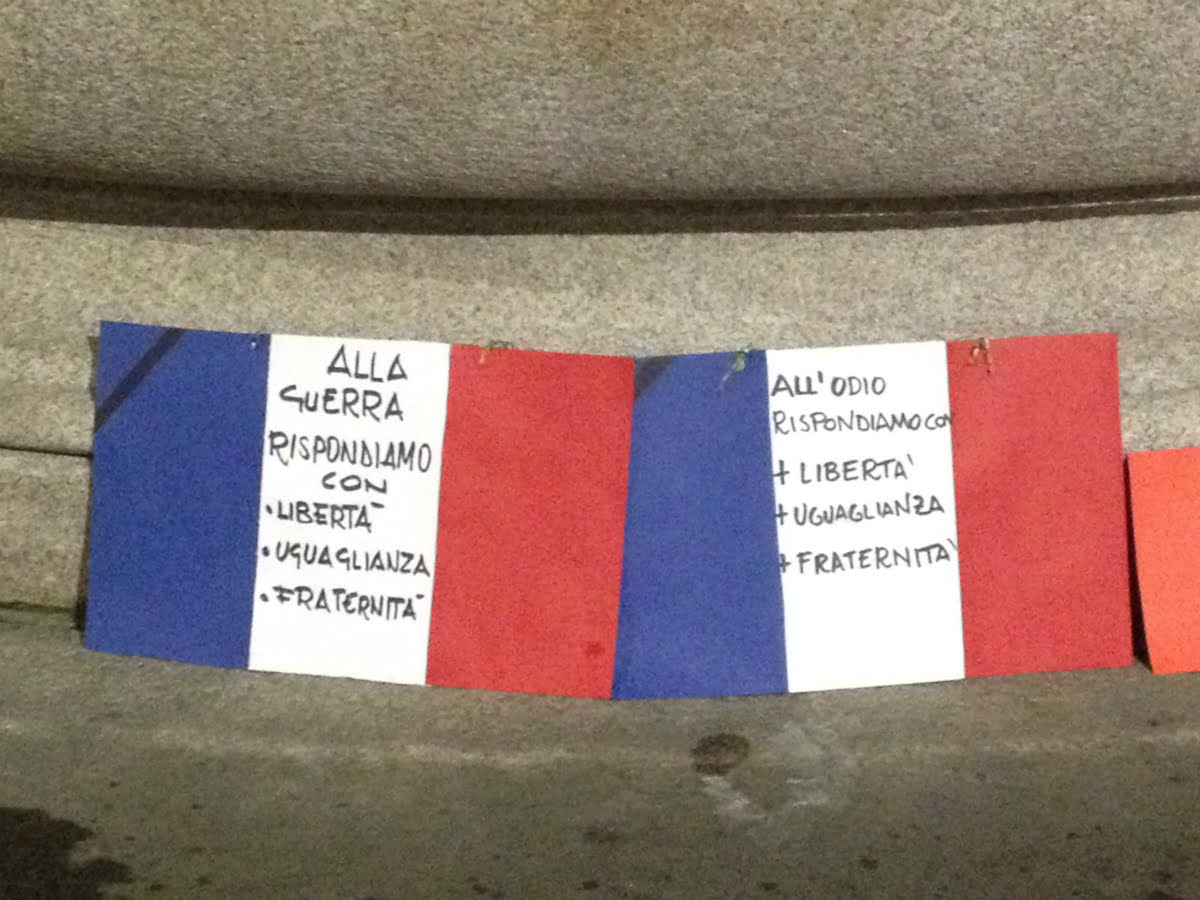 ALLA
GUERRA
RISPONDIAMO
CON
• LIBERTÀ
• UGUAGLIANZA
• FRATERNITÀ
ALL'ODIO
RISPONDIAMO CON
+ LIBERTA'
+ UGUAGLIANZA
+ FRATERNITA'